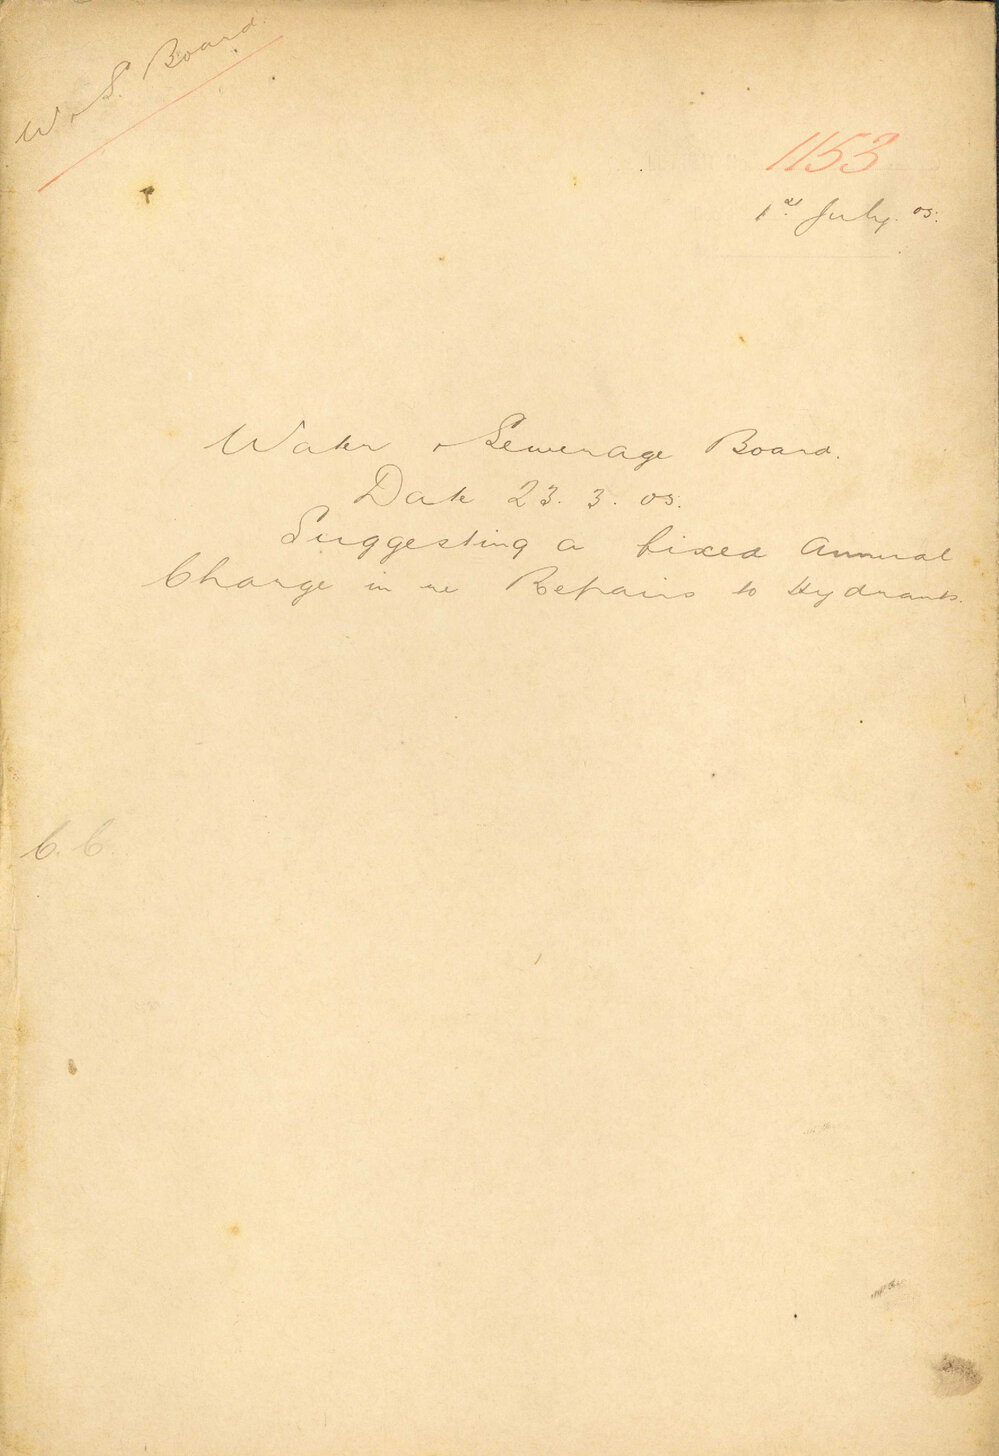 W & S. Board.
1153
1st July. 05.
Water & Sewerage Board.
Date 23. 3. 05.
Suggesting a fixed Annual
Charge in re Repairs to Hydrants.
C. C.